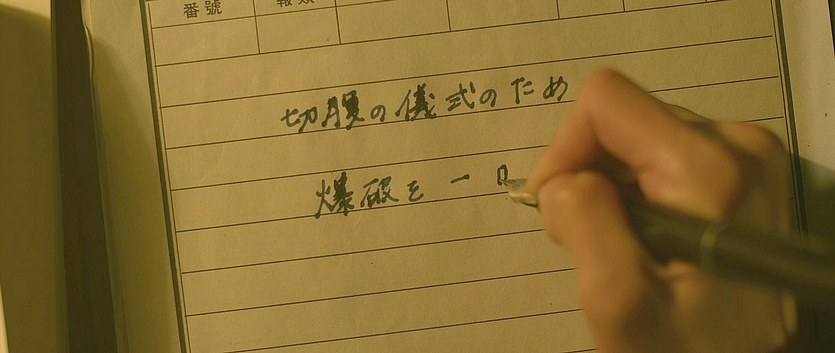 番號 報類
切腹の儀式のため
爆破を一